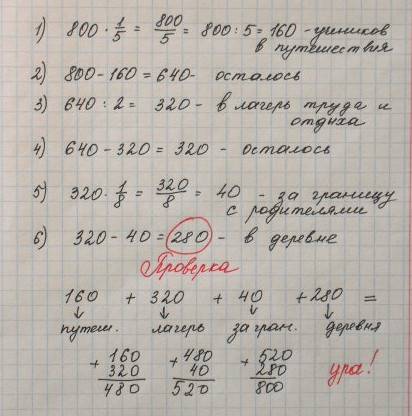 1) 800 · 1/5 = 800/5 = 800 : 5 = 160 - учеников
в путешествия
2) 800 - 160 = 640 - осталось
3) 640 : 2 = 320 - в лагерь труда и
отдыха
4) 640 - 320 = 320 - осталось
5) 320 · 1/8 = 320/8 = 40 - за границу
с родителями
6) 320 - 40 = 280 - в деревне
Проверка
160 + 320 + 40 + 280 =
↓ ↓ ↓ ↓
путеш. лагерь загран. деревня
+ 160 + 480 + 520
320 40 280
480 520 800
ура!